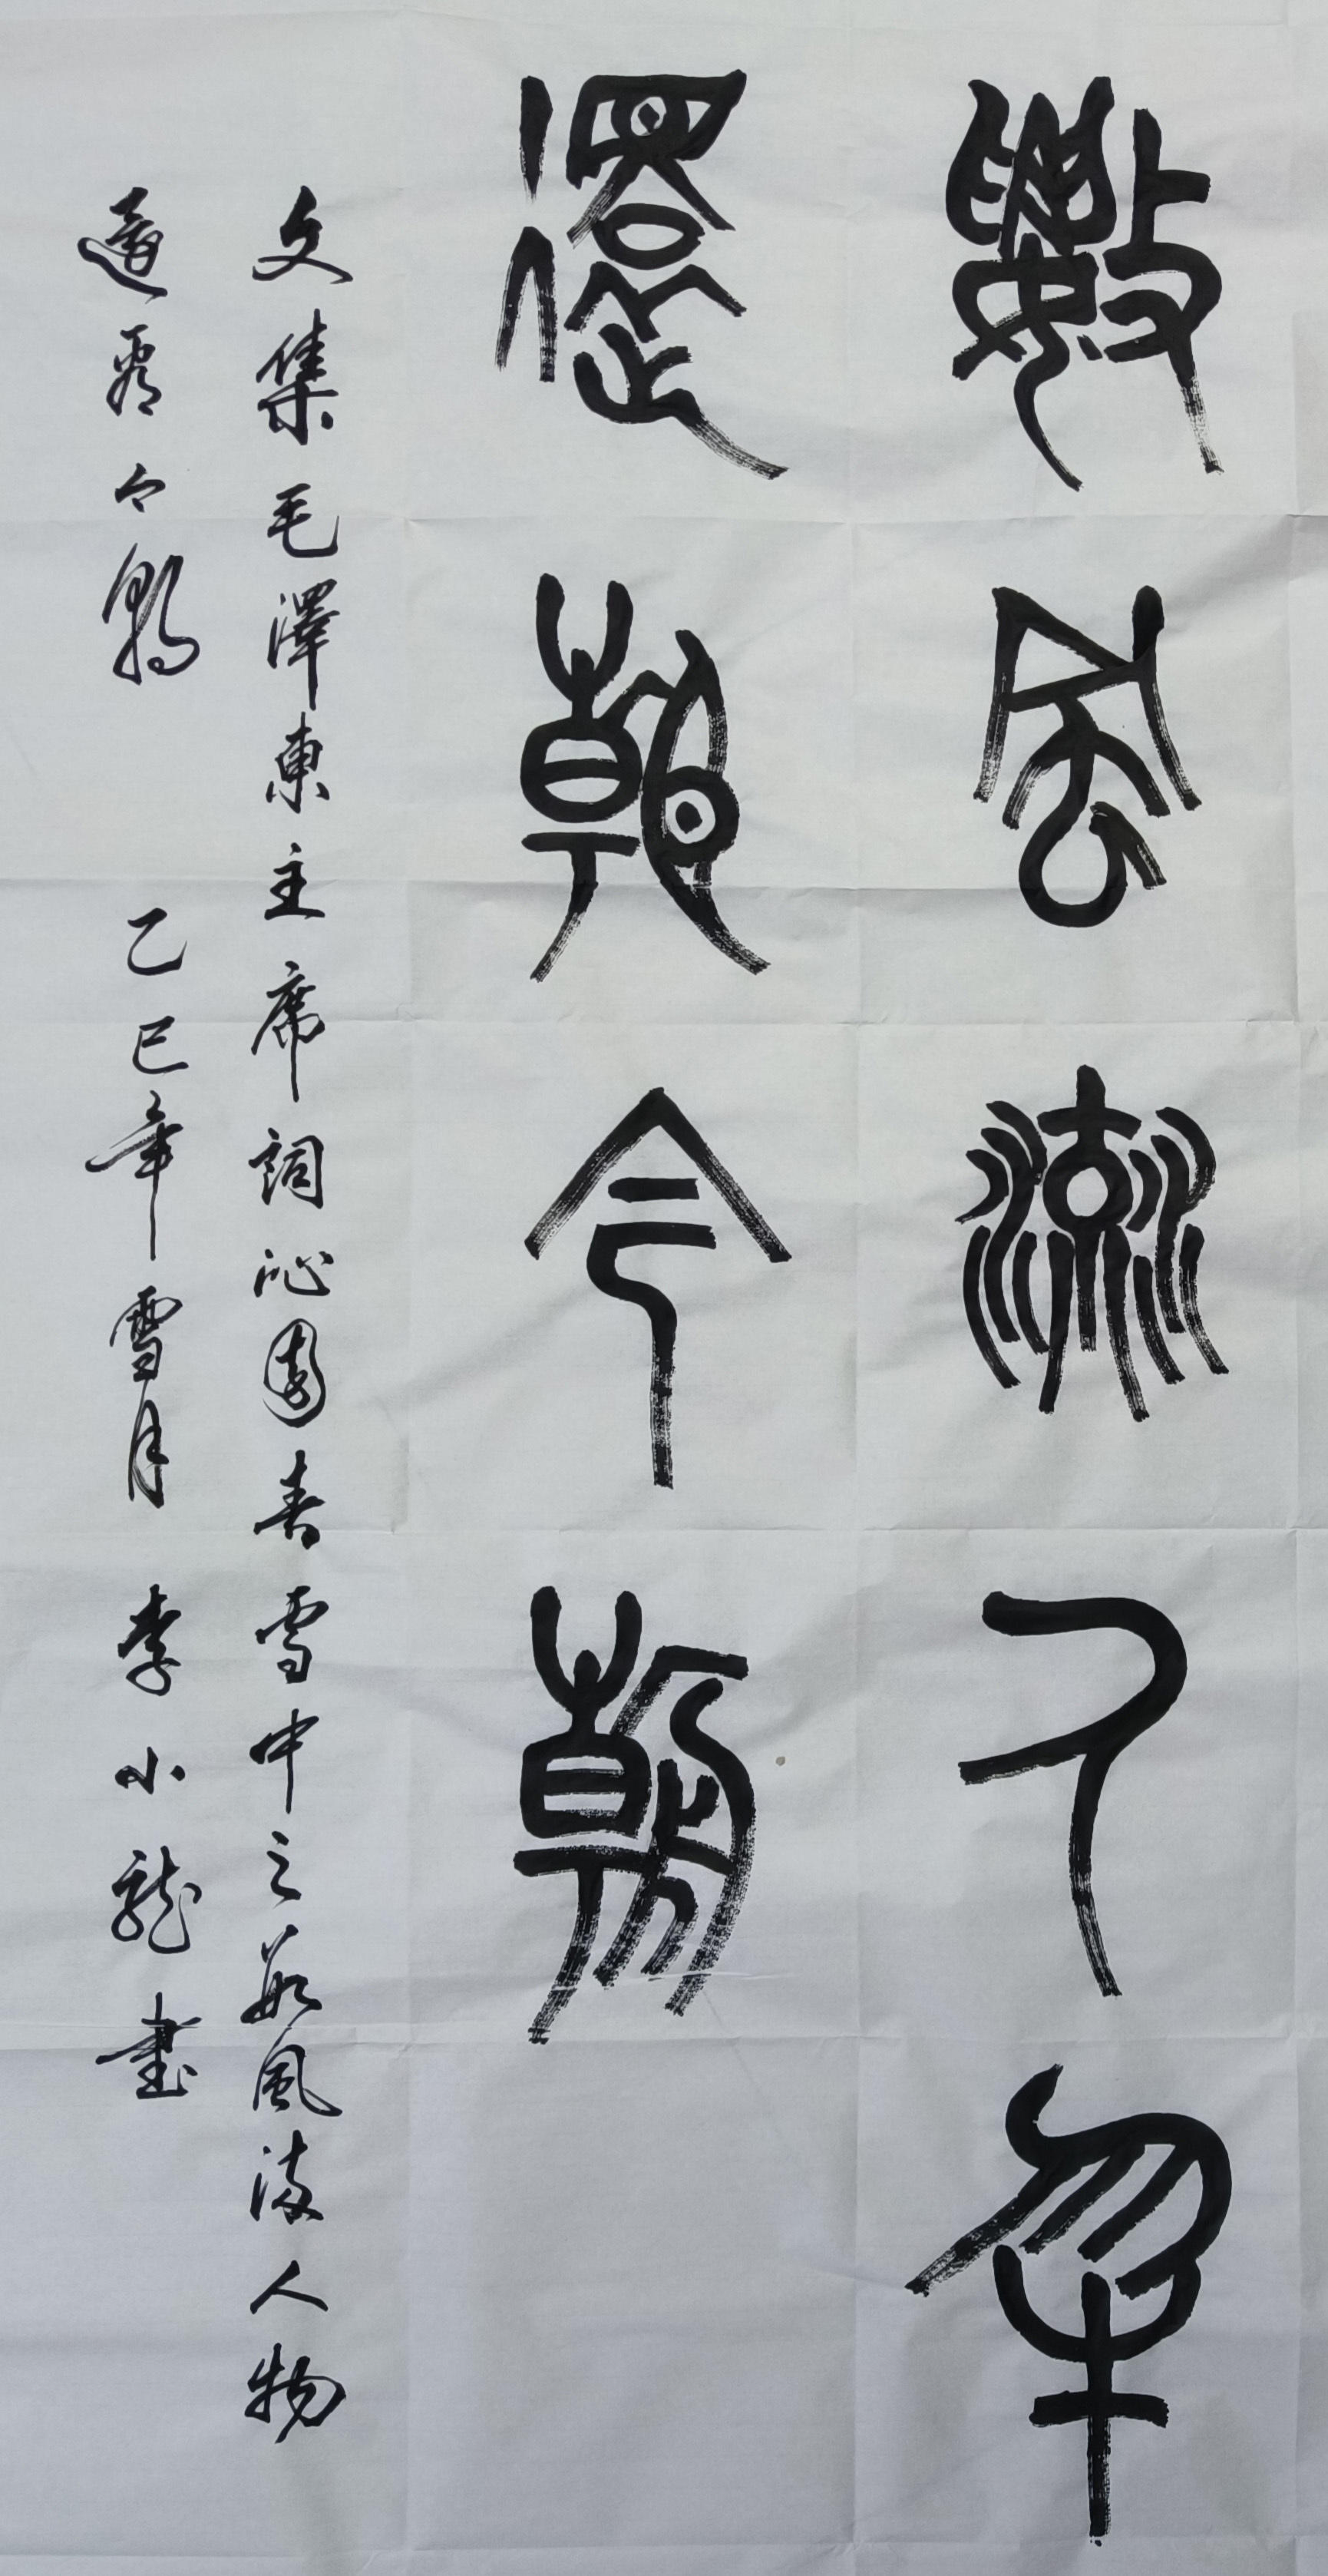 數風流人物
還看今朝
文集毛澤東主席詞沁園春雪中之數風流人物
還看今朝 乙巳年雪月 李小龍書